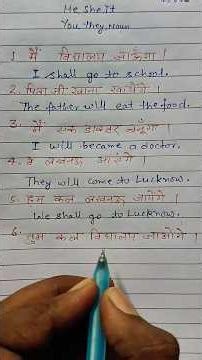 He She It
You They, Noun
1. मैं विद्यालय जाऊँगा ।
I shall go to school.
2. पिता जी खाना खायेंगे ।
The father will eat the food.
3. मैं एक डाक्टर बनूँगा ।
I will became a doctor.
4. वे लखनऊ आएंगे ।
They will come to Lucknow.
5. हम कल लखनऊ जायेंगे ।
We shall go to Lucknow.
6. तुम कल विद्यालय जाओगे ।